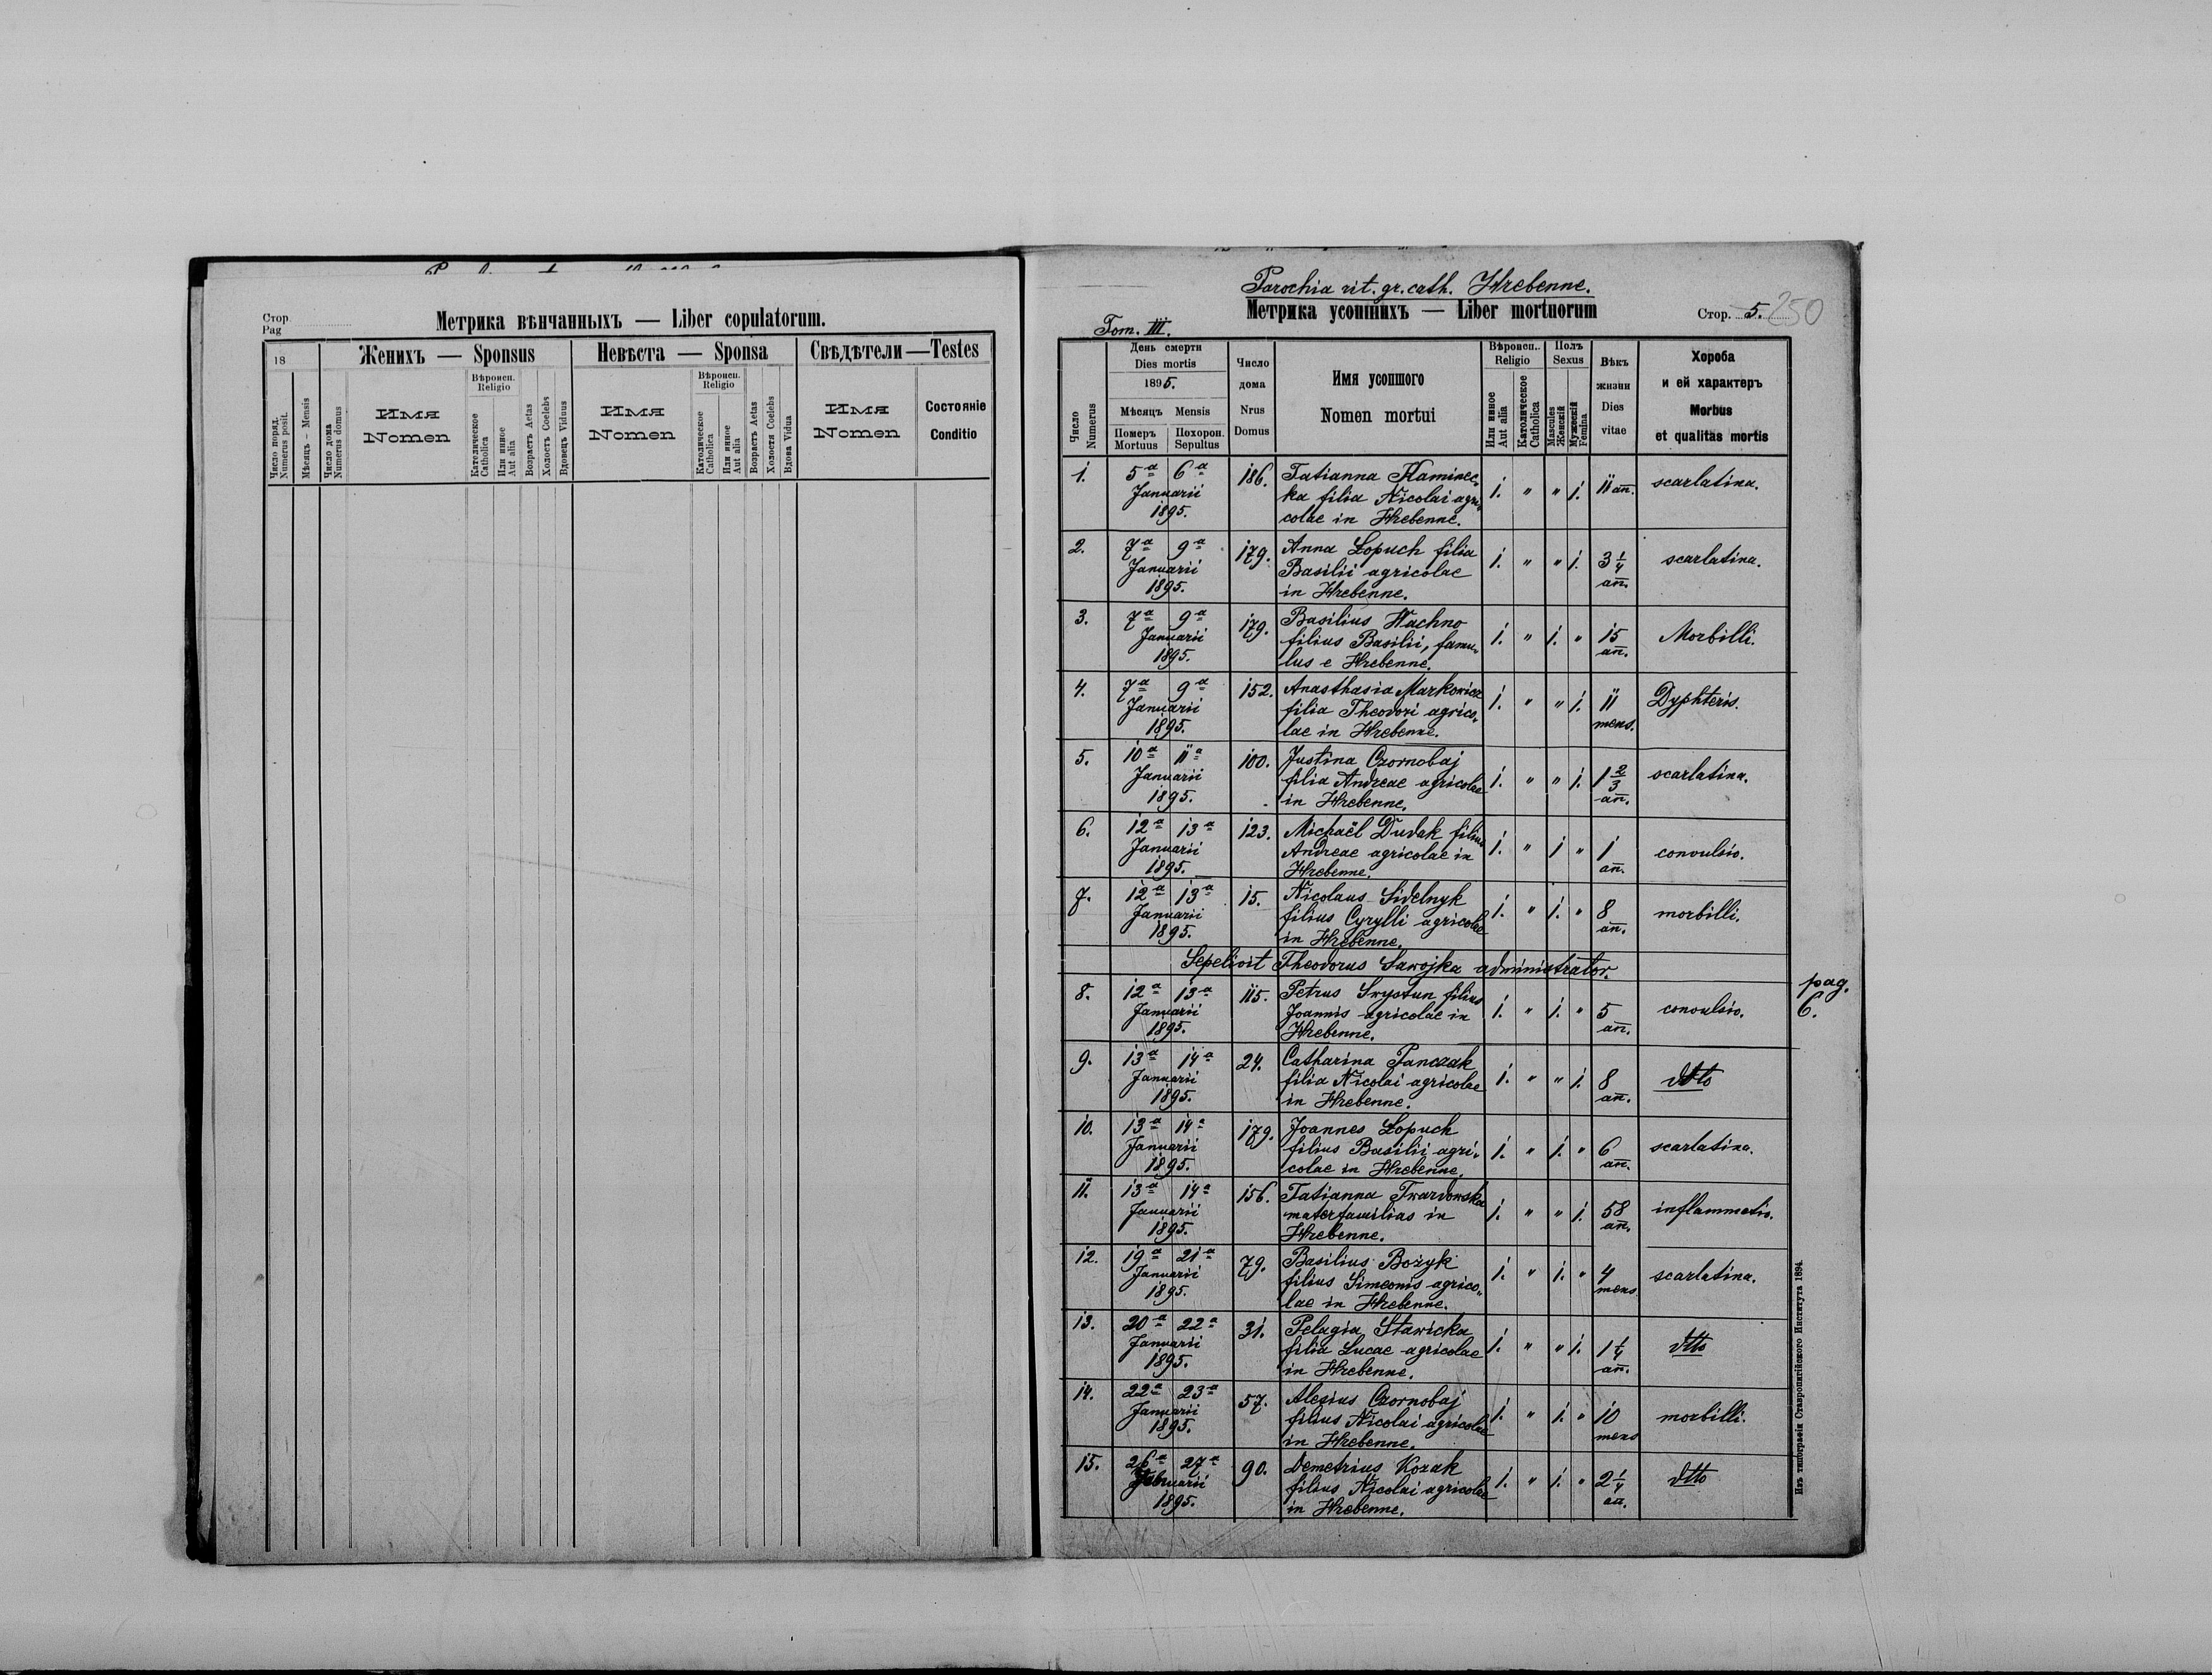 Стор.
Pag
Метрика вѣнчанныхъ — Liber copulatorum.
18
Женихъ — Sponsus
Невѣста — Sponsa
Свѣдѣтели — Testes
Число поряд.
Numerus posit.
Мѣсяцъ – Mensis
Число дома
Numerus domus
Имя
Nomen
Вѣроисп.
Religio
Католическое
Catholica
Или инное
Aut alia
Возрастъ Aetas
Холостъ Coelebs
Вдовецъ Viduus
Имя
Nomen
Вѣроисп.
Religio
Католическое
Catholica
Или инное
Aut alia
Возрастъ Aetas
Холостя Coelebs
Вдова Vidua
Имя
Nomen
Состоянiе
Conditio
Parochia rit. gr. cath. Hrebenne.
Метрика усопшихъ — Liber mortuorum
Стор. 5. 250
Tom. III.
Число
Numerus
День смерти
Dies mortis
1895.
Мѣсяцъ Mensis
Померъ
Mortuus
Похорон.
Sepultus
Число
дома
Nrus
Domus
Имя усопшого
Nomen mortui
Вѣроисп.
Religio
Или инное
Aut alia
Католическое
Catholica
Полъ
Sexus
Mascules
Женскій
Мужескій
Femina
Вѣкъ
жизни
Dies
vitae
Хороба
и ей характеръ
Morbus
et qualitas mortis
1. 5a 6a 186. Tatianna Kaminec- 1. " " 1. 11 an. scarlatina.
Januarii ka filia Nicolai agri-
1895. colae in Hrebenne.
2. 7a 9a 179. Anna Lopuch filia 1. " " 1. 3 1/4 scarlatina.
Januarii Basilii agricolae an.
1895. in Hrebenne.
3. 7a 9a 179. Basilius Hachno 1. " 1. " 15 Morbilli.
Januarii filius Basilii, famu- an.
1895. lus e Hrebenne.
4. 7a 9a 152. Anasthasia Markowicz 1. " " 1. 11 Dyphteris.
Januarii filia Theodori agrico- mens.
1895. lae in Hrebenne.
5. 10a 11a 100. Justina Czornobaj 1. " " 1. 1 2/3 scarlatina.
Januarii filia Andreae agricolae an.
1895. in Hrebenne.
6. 12a 13a 123. Michaël Dudak filius 1. " 1 " 1 convulsio.
Januarii Andreae agricolae in an.
1895. Hrebenne.
7. 12a 13a 15. Nicolaus Sidelnyk 1. " 1. " 8 morbilli.
Januarii filius Cyrylli agricolae an.
1895. in Hrebenne.
Sepelivit Theodorus Sawojka administrator.
8. 12a 13a 115. Petrus Swystun filius 1. " 1. " 5 convulsio.
Januarii Joannis agricolae in an.
1895. Hrebenne.
pag.
6.
9. 13a 14a 24. Catharina Panczak 1. " " 1. 8 dtto
Januarii filia Nicolai agricolae an.
1895. in Hrebenne.
10. 13a 14a 179. Joannes Lopuch 1. " 1. " 6 scarlatina.
Januarii filius Basilii agri- an.
1895. colae in Hrebenne.
11. 13a 14a 156. Tatianna Twardowska 1. " " 1. 58 inflammatio.
Januarii materfamilias in an.
1895. Hrebenne.
12. 19a 21a 79. Basilius Bożyk 1. " 1. " 4 scarlatina.
Januarii filius Simeonis agrico- mens
1895. lae in Hrebenne.
13. 20a 22a 31. Pelagia Stawicka 1. " " 1. 1 1/4 dtto
Januarii filia Lucae agricolae an.
1895. in Hrebenne.
14. 22a 23a 57. Alexius Czornobaj 1. " 1. " 10 morbilli.
Januarii filius Nicolai agricolae mens
1895. in Hrebenne.
15. 26a 27a 90. Demetrius Kozak 1. " 1. " 2 1/4 dtto
Januarii filius Nicolai agricolae an.
1895. in Hrebenne.
Изъ типографіи Ставропигійского Института 1894.